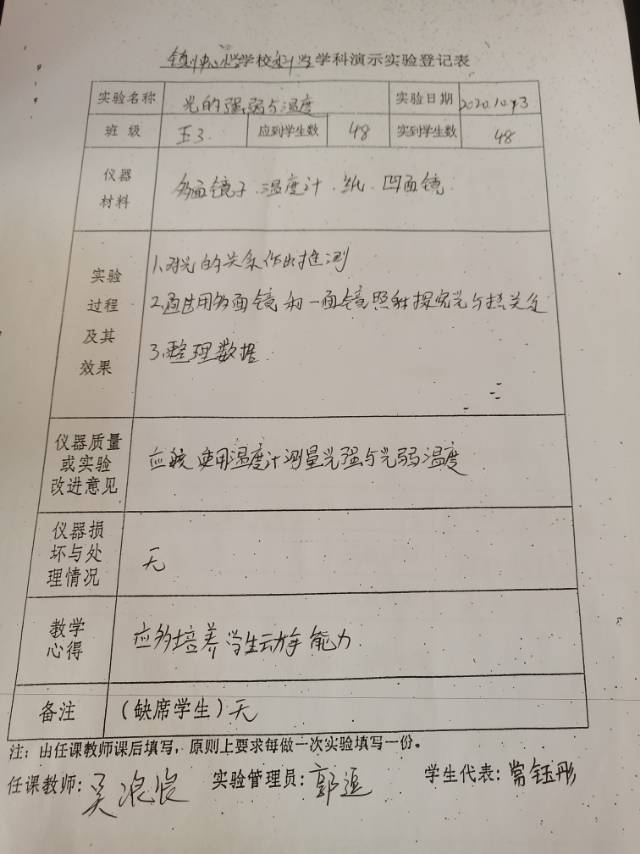 学校科学学科演示实验登记表
实验名称 光的强弱与温度 实验日期 2020.10.13
班级 五3. 应到学生数 48 实到学生数 48
仪器
材料
多面镜子.温度计.纸.凹面镜
实验
过程
及其
效果
1.对光的关系作出推测
2.通过用多面镜和一面镜照射探究光与热关系
3.整理数据
仪器质量
或实验
改进意见
应该使用温度计测量光强与光弱温度
仪器损
坏与处
理情况
无
教学
心得
应多培养学生动手能力
备注 (缺席学生)无
注:由任课教师课后填写,原则上要求每做一次实验填写一份。
任课教师:吴浪浪 实验管理员:郭 学生代表:常钰彤